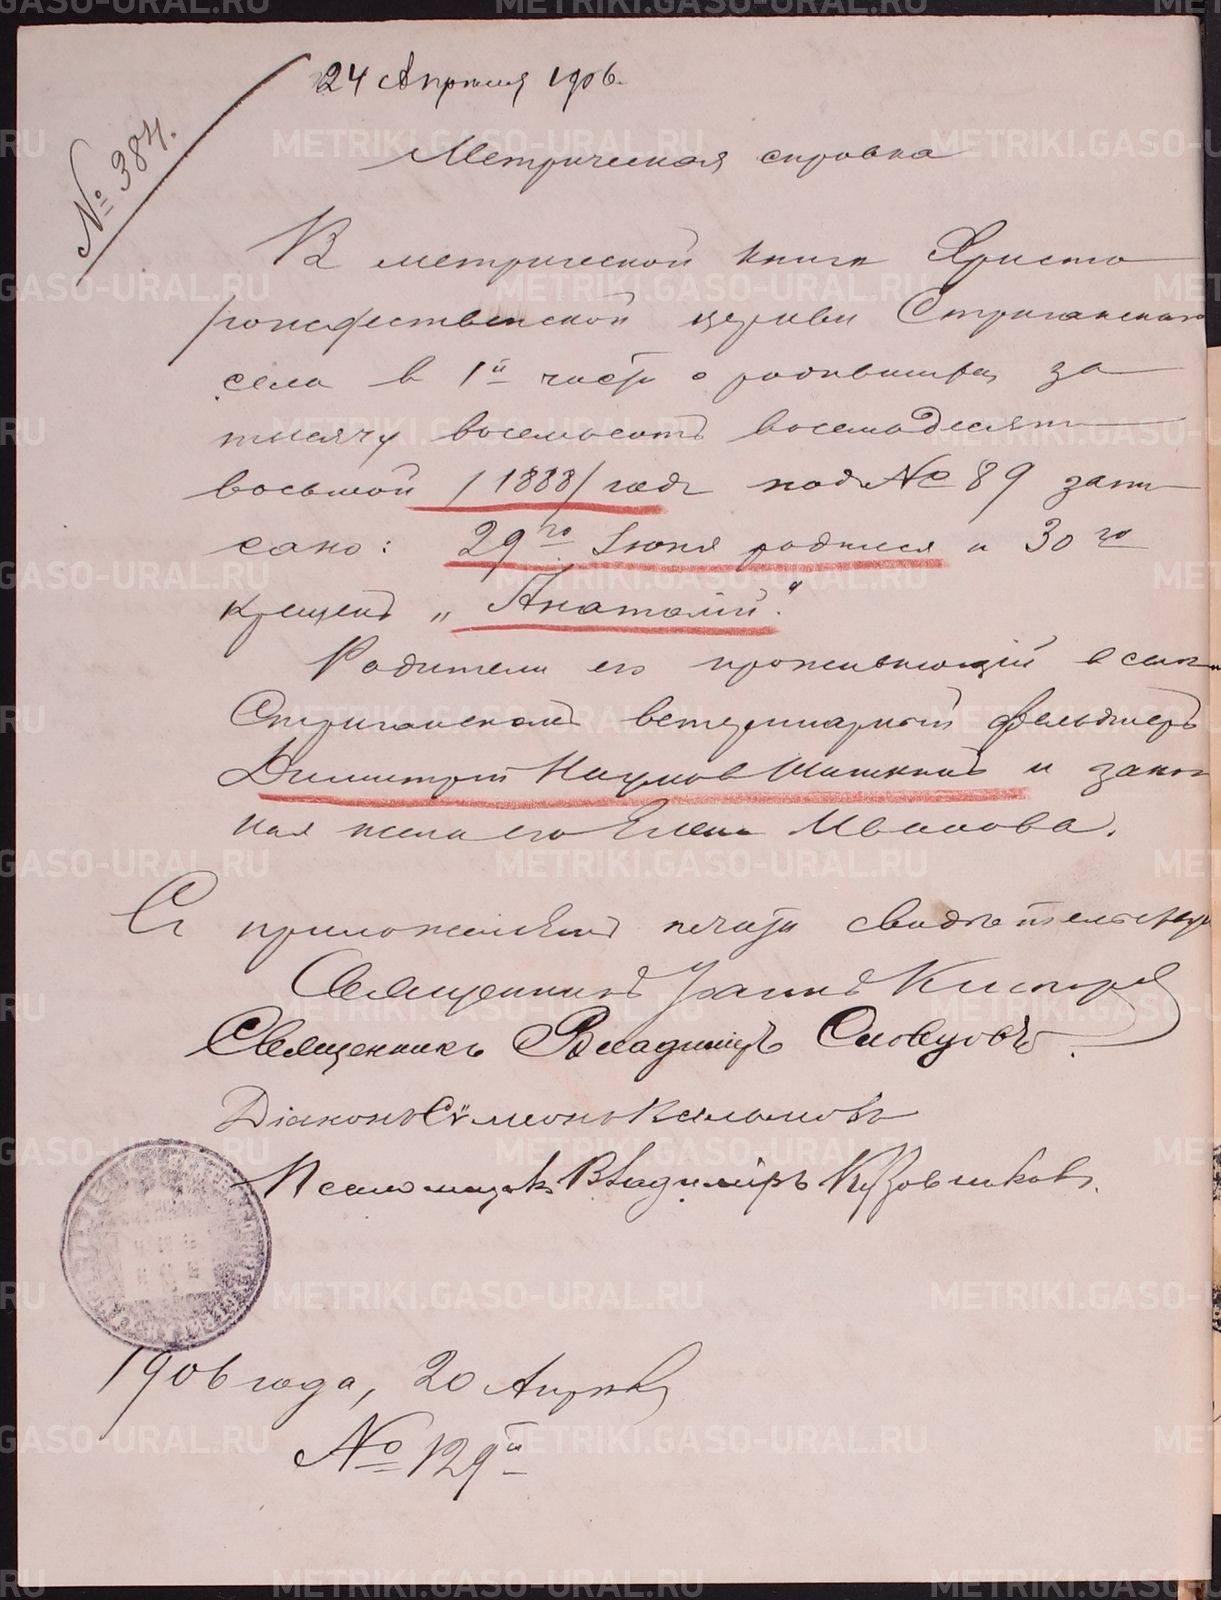 24 Апреля 1906.
№ 384.
Метрическая справка
В метрической книге Христо
рождественской церкви Стриганскаго
села в 1й части о родившихся за
тысячу восемьсотъ восемьдесятъ
восьмой /1888/ годъ под № 89 запи
сано: 29го Іюня родился и 30го
крещенъ „Анатолій“.
Родители его проживающій в селе
Стриганскомъ ветеринарный фельдшеръ
Димитрій Наумов и закон
ная жена его Елена Иванова.
С приложеніемъ печати свидетельствуем
Священникъ Іоаннъ
Священникъ Владиміръ Словцовъ.
Діаконъ Сѵмеонъ
Псаломщикъ Владиміръ Кузовниковъ.
1906 года, 20 Апреля
№ 129й
METRIKI.GASO-URAL.RU